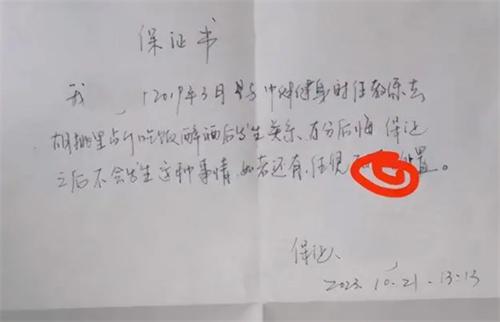 保证书
我 于2019年3月 与中 健身时任教练去
胡桃里 吃饭醉酒后发生关系、万分后悔 保证
之后不会发生这种事情 如若还有、任凭 处置。
保证、
2023.10.21.13:13